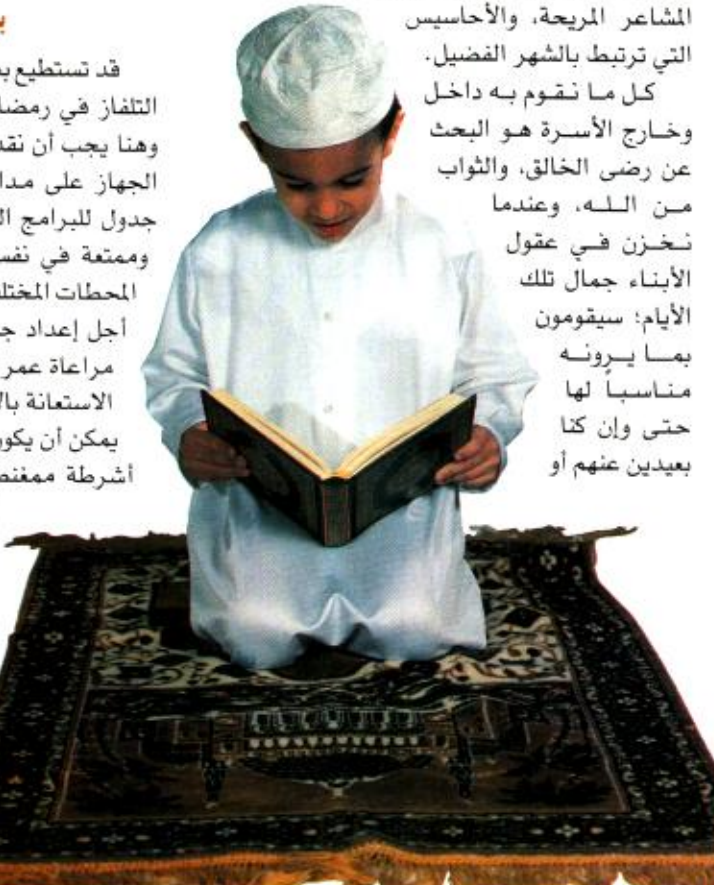 المشاعر المريحة، والأحاسيس
التي ترتبط بالشهر الفضيل.
كل ما نقوم به داخل
وخارج الأسرة هو البحث
عن رضى الخالق، والثواب
من الله، وعندما
نخزن في عقول
الأبناء جمال تلك
الأيام؛ سيقومون
بما يرونه
مناسباً لها
حتى وإن كنا
بعيدين عنهم أو
قد تستطيع
التلفاز في
وهنا يجب أن
الجهاز على
جدول للبرامج
وممتعة في
المحطات
أجل إعداد
مراعاة عمر
الاستعانة
يمكن أن
أشرطة